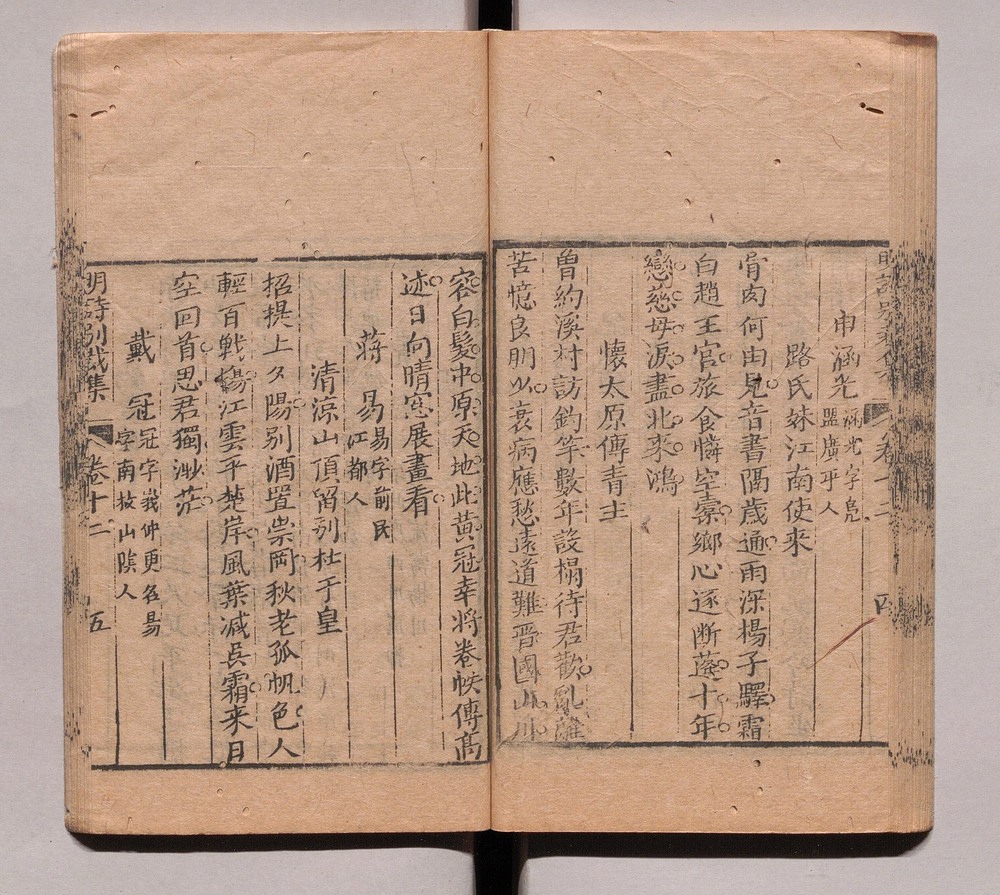 申涵光 涵光字鳧盟廣平人
路氏妹江南使來
骨肉何由見音書隔歲通雨深楊子驛霜
白趙王宮旅食憐空槖鄉心逐斷蓬十年
戀慈母淚盡北來鴻
懷太原傅青主
曾約溪村訪釣竿數年設榻待君歡亂離
苦憶良朋少衰病應愁遠道難晋國山川
容白髮中原天地此黃冠幸將卷帙傳高
迹日向晴窓展畫看
蔣易 易字前民江都人
清涼山頂留别杜于皇
招提上夕陽别酒置崇岡秋老孤帆色人
輕百戰塲江雲平楚岸風葉减吳霜来日
空回首思君獨渺茫
戴冠 冠字我仲更名易字南枝山隂人
明詩別裁集 卷十二 五